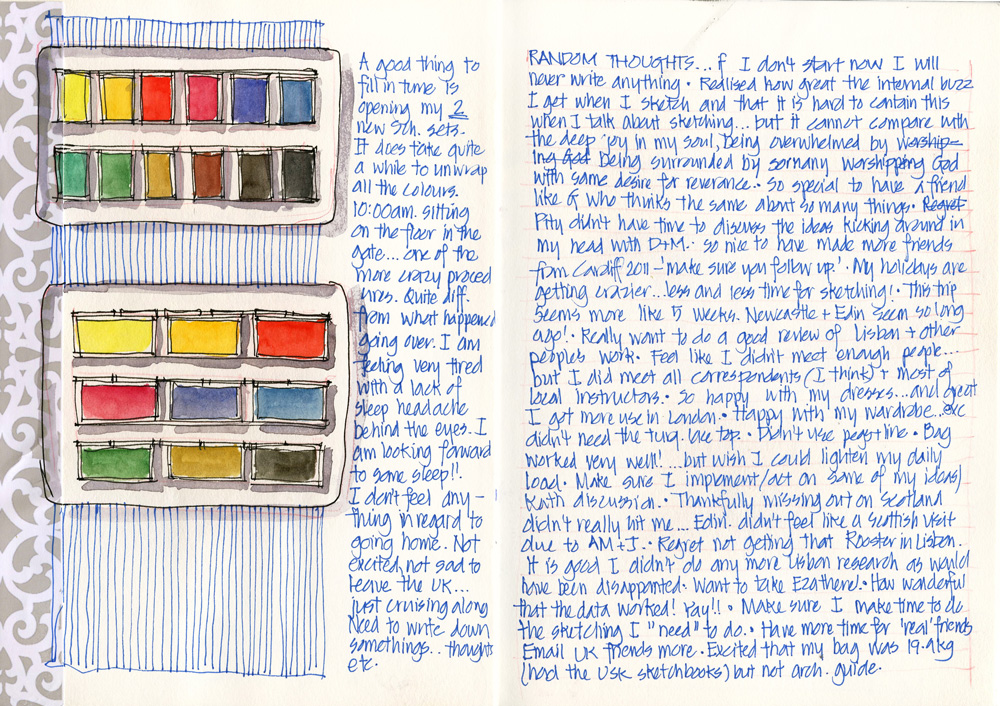 A good thing to
fill in time is
opening my 2
new Sch. sets.
It does take quite
a while to unwrap
all the colours.
10:00am. sitting
on the floor in the
gate... one of the
more crazy proced
ures. Quite diff.
from what happened
going over. I am
feeling very tired
with a lack of
sleep headache
behind the eyes. I
am looking forward
to some sleep!!.
I don't feel any-
thing in regard to
going home. Not
excited, not sad to
leave the UK...
just cruising along
Need to write down
somethings.. thoughts
etc.
RANDOM THOUGHTS... if I don't start now I will
never write anything • Realised how great the internal buzz
I get when I sketch and that it is hard to contain this
when I talk about sketching... but it cannot compare with
the deep joy in my soul, being overwhelmed by worship-
ing God being surrounded by so many worshipping God
with same desire for reverance.. So special to have a friend
like G who thinks the same about so many things. Regret
Pity didn't have time to discuss the ideas kicking around in
my head with D+M. • so nice to have made more friends
from Cardiff 2011 - 'make sure you follow up.' • My holidays are
getting crazier... less and less time for sketching! • This trip
seems more like 5 weeks. Newcastle + Edin seem so long
ago! • Really want to do a good review of Lisbon + other
people's work. Feel like I didn't meet enough people...
but I did meet all correspondents (I think) + most of
local instructors. • So happy with my dresses... and great
I got more use in London. • Happy with my wardrobe... exc
didn't need the turq. lace top. • Didn't use pegs + line • Bag
worked very well!... but wish I could lighten my daily
load. • Make sure I implement/act on some of my ideas)
Ruth discussion. • Thankfully missing out on Scotland
didn't really hit me... Edin. didn't feel like a Scottish visit
due to AM + J. • Regret not getting that Rooster in Lisbon.
It is good I didn't do any more Lisbon research as would
have been disappointed. Want to take Eza there! • How wonderful
that the data worked! Yay!! • Make sure I make time to do
the sketching I "need" to do. • Have more time for 'real' friends
Email UK friends more • Excited that my bag was 19.9kg
(had the USK sketchbooks) but not arch. guide.